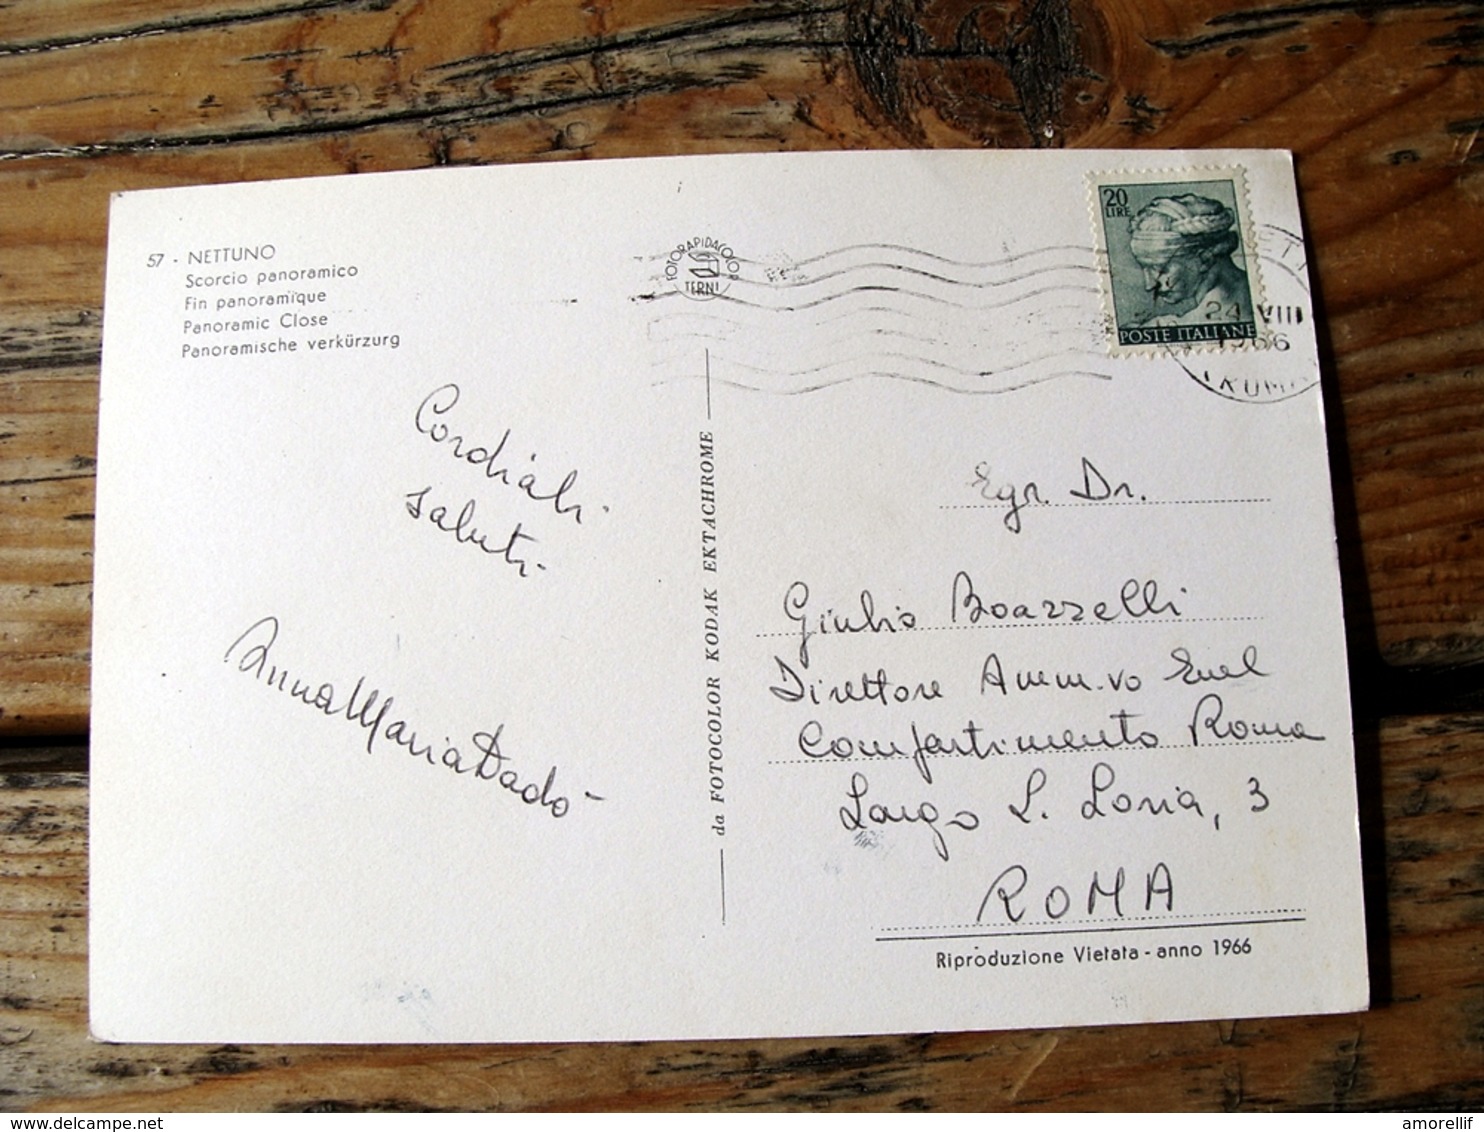 57 - NETTUNO
Scorcio panoramico
Fin panoramique
Panoramic Close
Panoramische verkürzurg
Cordiali
saluti
Anna Maria Dadò
da FOTOCOLOR KODAK EKTACHROME
FOTORAPIDACOLOR
TERNI
20
LIRE
POSTE ITALIANE
24 VIII
1966
ROMA
Egr. Dr.
Giulio Boazzelli
Direttore Amm.vo Enel
Compartimento Roma
Largo L. Loria, 3
ROMA
Riproduzione Vietata - anno 1966
delcampe.net
amorellif